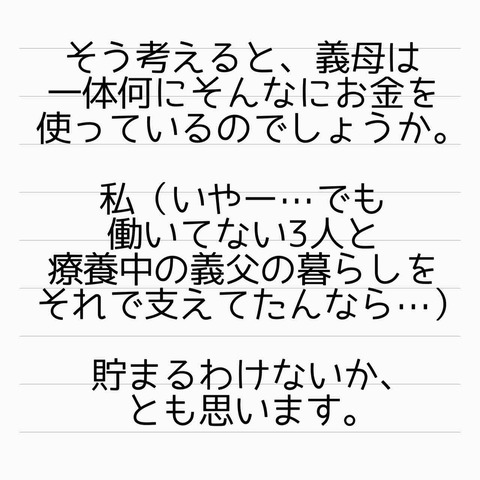 そう考えると、義母は
一体何にそんなにお金を
使っているのでしょうか。
私（いやー…でも
働いてない3人と
療養中の義父の暮らしを
それで支えてたんなら…）
貯まるわけないか、
とも思います。